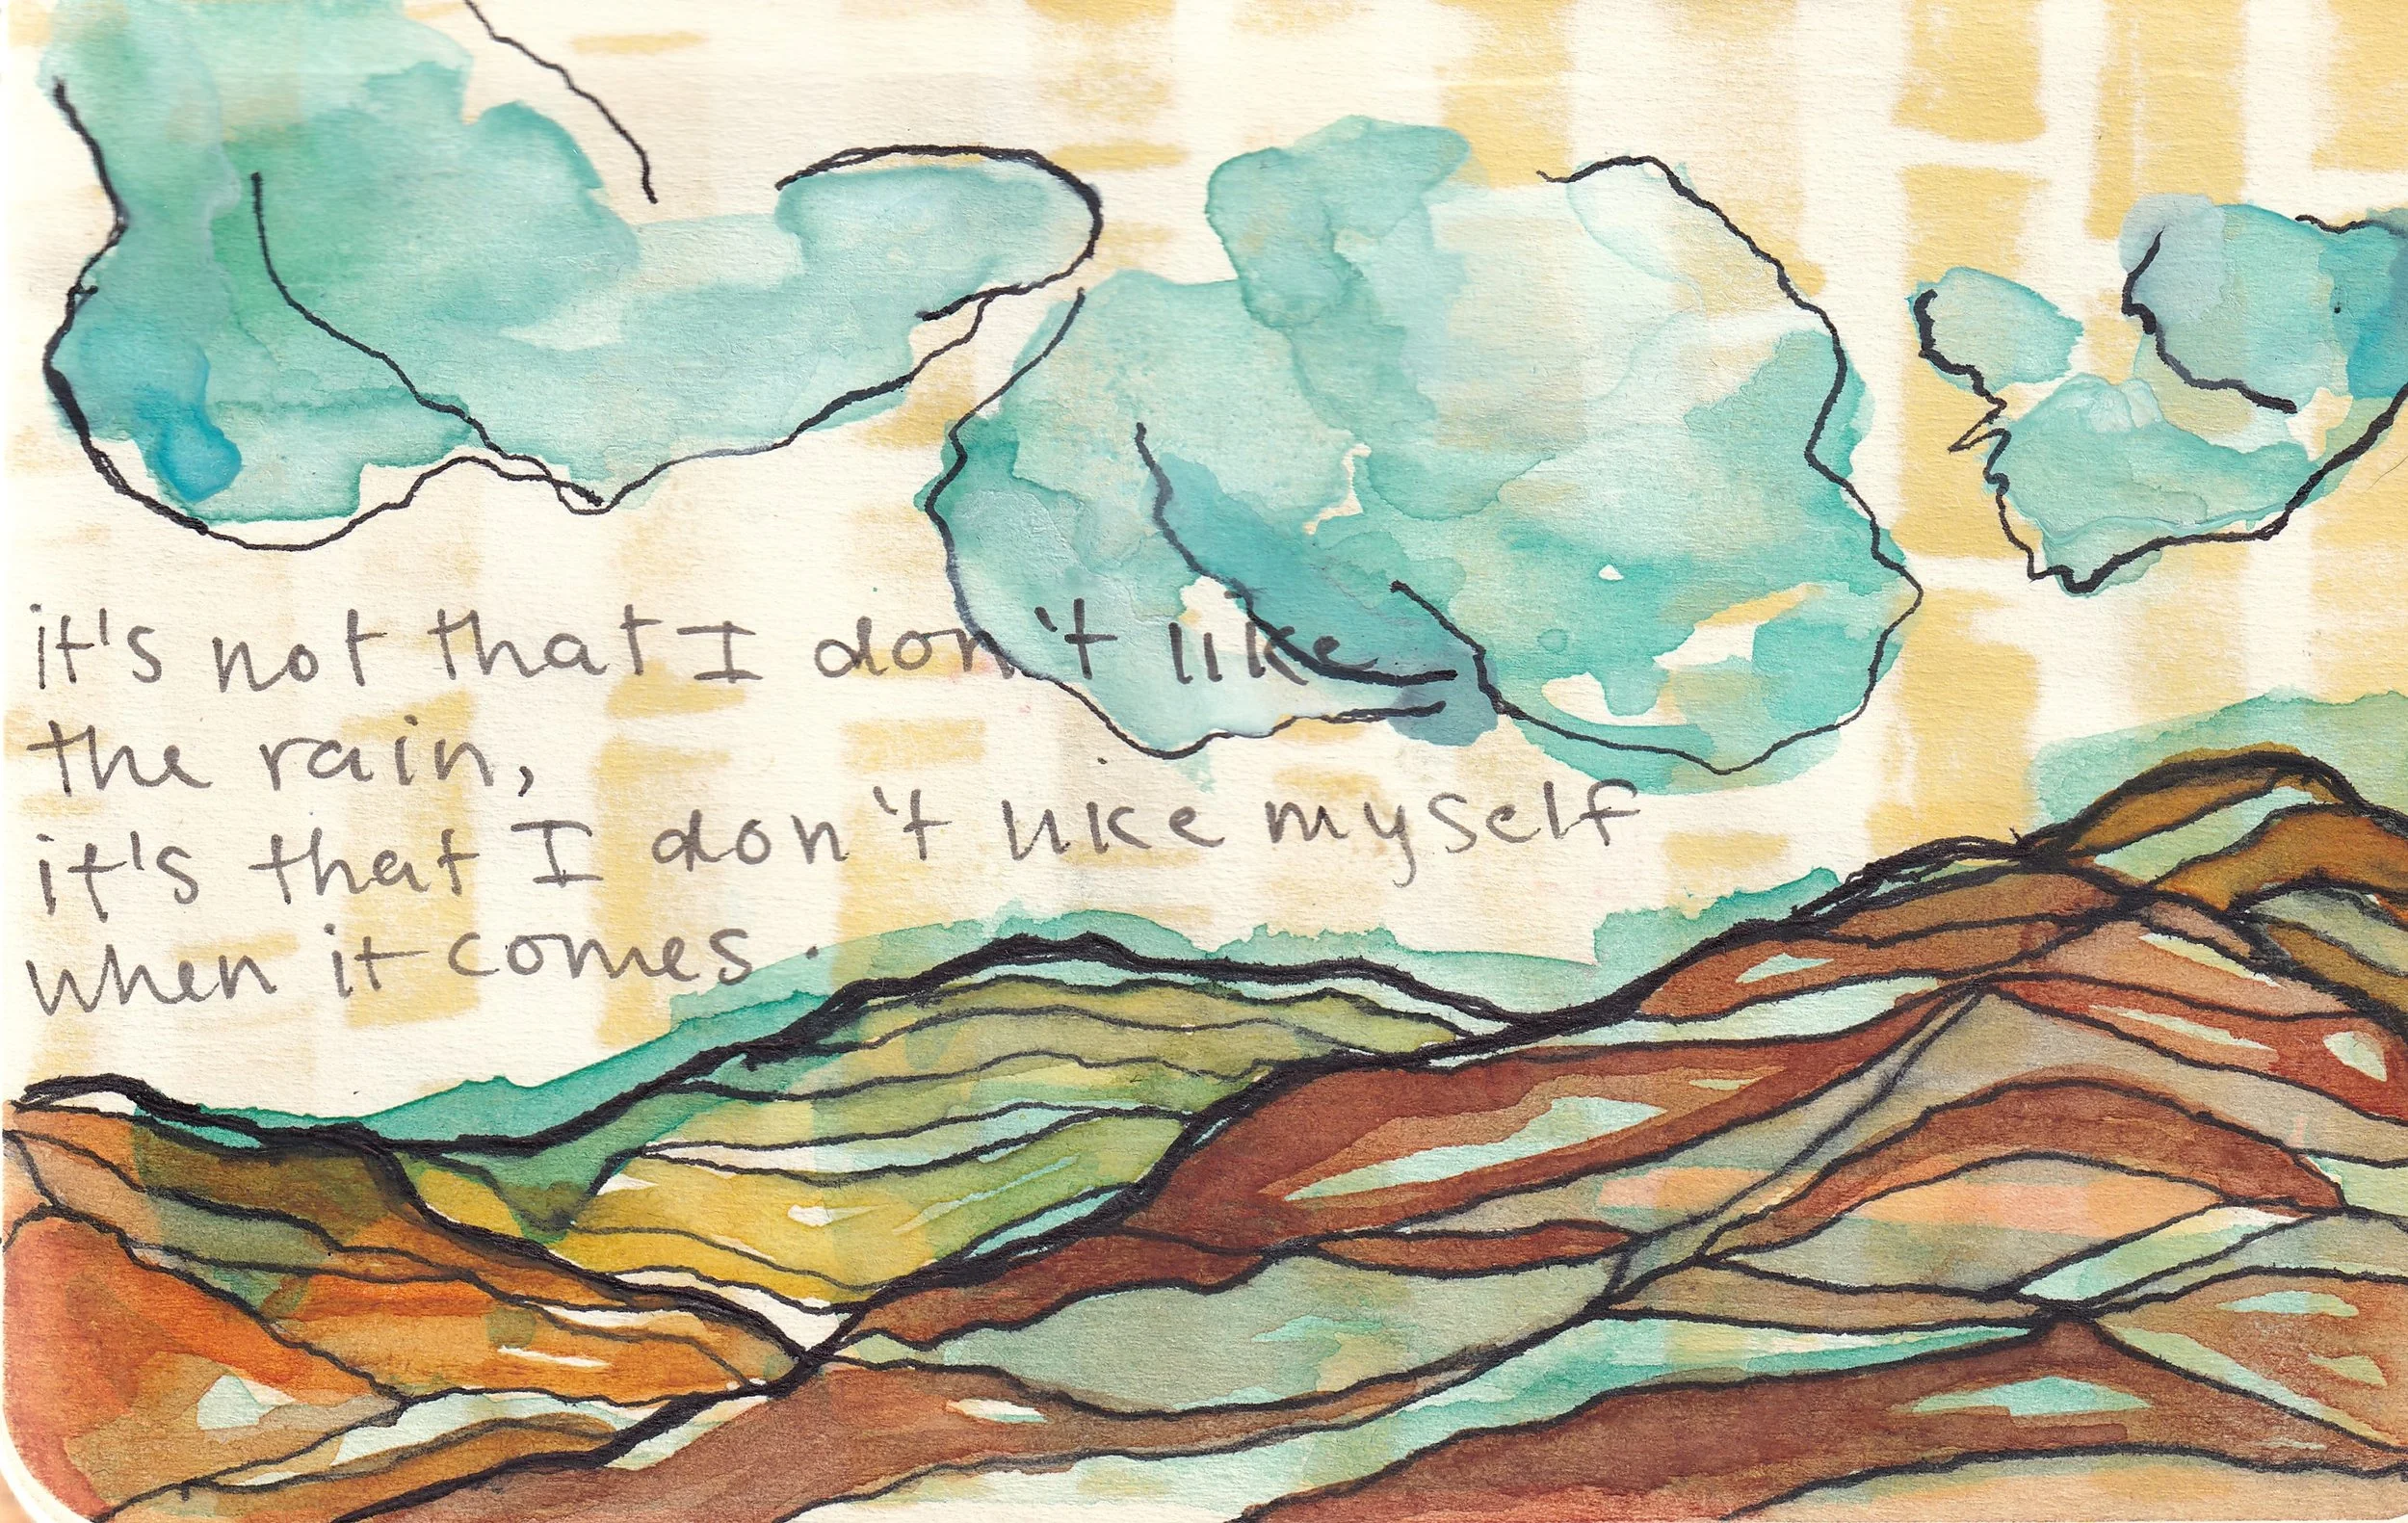 it's not that I don't like
the rain,
it's that I don't like myself
when it comes.